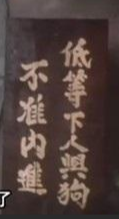 低等下人與狗
不准内進
了